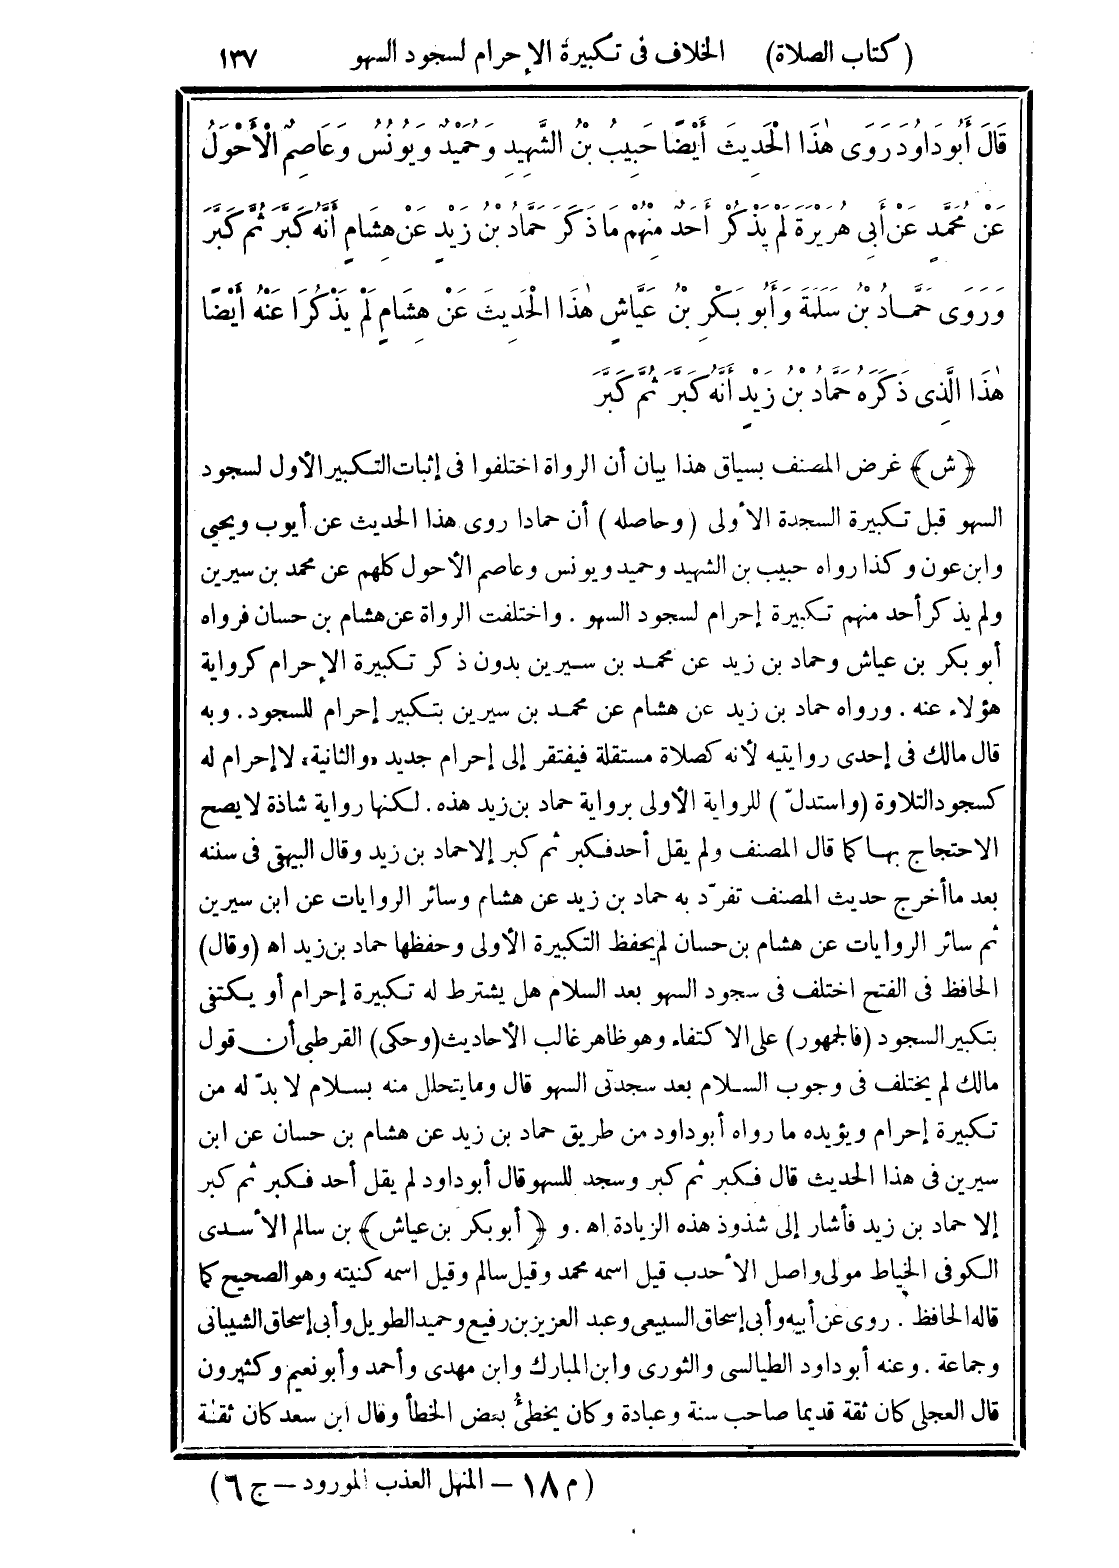 (كتاب الصلاة) الخلاف فى تكبيرة الإحرام لسجود السهو ١٣٧
قَالَ أَبُو دَاوُدَ رَوَى هٰذَا الْحَدِيثَ أَيْضًا حَبِيبُ بْنُ الشَّهِيدِ وَحُمَيْدٌ وَيُونُسُ وَعَاصِمٌ الْأَحْوَلُ
عَنْ مُحَمَّدٍ عَنْ أَبِى هُرَيْرَةَ لَمْ يَذْكُرْ أَحَدٌ مِنْهُمْ مَا ذَكَرَ حَمَّادُ بْنُ زَيْدٍ عَنْ هِشَامٍ أَنَّهُ كَبَّرَ ثُمَّ كَبَّرَ
وَرَوَى حَمَّادُ بْنُ سَلَمَةَ وَأَبُو بَكْرِ بْنُ عَيَّاشٍ هٰذَا الْحَدِيثَ عَنْ هِشَامٍ لَمْ يَذْكُرَا عَنْهُ أَيْضًا
هٰذَا الَّذِى ذَكَرَهُ حَمَّادُ بْنُ زَيْدٍ أَنَّهُ كَبَّرَ ثُمَّ كَبَّرَ
﴿ش﴾ غرض المصنف بسياق هذا بيان أن الرواة اختلفوا فى إثبات التكبير الأول لسجود
السهو قبل تكبيرة السجدة الأولى (وحاصله) أن حمادا روى هذا الحديث عن أيوب ويحيى
وابن عون وكذا رواه حبيب بن الشهيد وحميد ويونس وعاصم الأحول كلهم عن محمد بن سيرين
ولم يذكر أحد منهم تكبيرة إحرام لسجود السهو . واختلفت الرواة عن هشام بن حسان فرواه
أبو بكر بن عياش وحماد بن زيد عن محمد بن سيرين بدون ذكر تكبيرة الإحرام كرواية
هؤلاء عنه . ورواه حماد بن زيد عن هشام عن محمد بن سيرين بتكبير إحرام للسجود . وبه
قال مالك فى إحدى روايتيه لأنه كصلاة مستقلة فيفتقر إلى إحرام جديد «والثانية» لا إحرام له
كسجود التلاوة (واستدلّ) للرواية الأولى برواية حماد بن زيد هذه . لكنها رواية شاذة لا يصح
الاحتجاج بها كما قال المصنف ولم يقل أحد فكبر ثم كبر إلا حماد بن زيد وقال البيهقى فى سننه
بعد ما أخرج حديث المصنف تفرّد به حماد بن زيد عن هشام وسائر الروايات عن ابن سيرين
ثم سائر الروايات عن هشام بن حسان لم يحفظ التكبيرة الأولى وحفظها حماد بن زيد اه (وقال)
الحافظ فى الفتح اختلف فى سجود السهو بعد السلام هل يشترط له تكبيرة إحرام أو يكتفى
بتكبير السجود (فالجمهور) على الاكتفاء وهو ظاهر غالب الأحاديث (وحكى) القرطبى أن قول
مالك لم يختلف فى وجوب السلام بعد سجدتى السهو قال وما يتحلل منه بسلام لا بدّ له من
تكبيرة إحرام ويؤيده ما رواه أبو داود من طريق حماد بن زيد عن هشام بن حسان عن ابن
سيرين فى هذا الحديث قال فكبر ثم كبر وسجد للسهو قال أبو داود لم يقل أحد فكبر ثم كبر
إلا حماد بن زيد فأشار إلى شذوذ هذه الزيادة اه . و ﴿أبو بكر بن عياش﴾ بن سالم الأسدى
الكوفى الخياط مولى واصل الأحدب قيل اسمه محمد وقيل سالم وقيل اسمه كنيته وهو الصحيح كما
قاله الحافظ . روى عن أبيه وأبى إسحاق السبيعى وعبد العزيز بن رفيع وحميد الطويل وأبى إسحاق الشيبانى
وجماعة . وعنه أبو داود الطيالسى والثورى وابن المبارك وابن مهدى وأحمد وأبو نعيم وكثيرون
قال العجلى كان ثقة قديما صاحب سنة وعبادة وكان يخطئ بعض الخطأ وقال ابن سعد كان ثقة
(م ١٨ – المنهل العذب المورود – ج ٦)